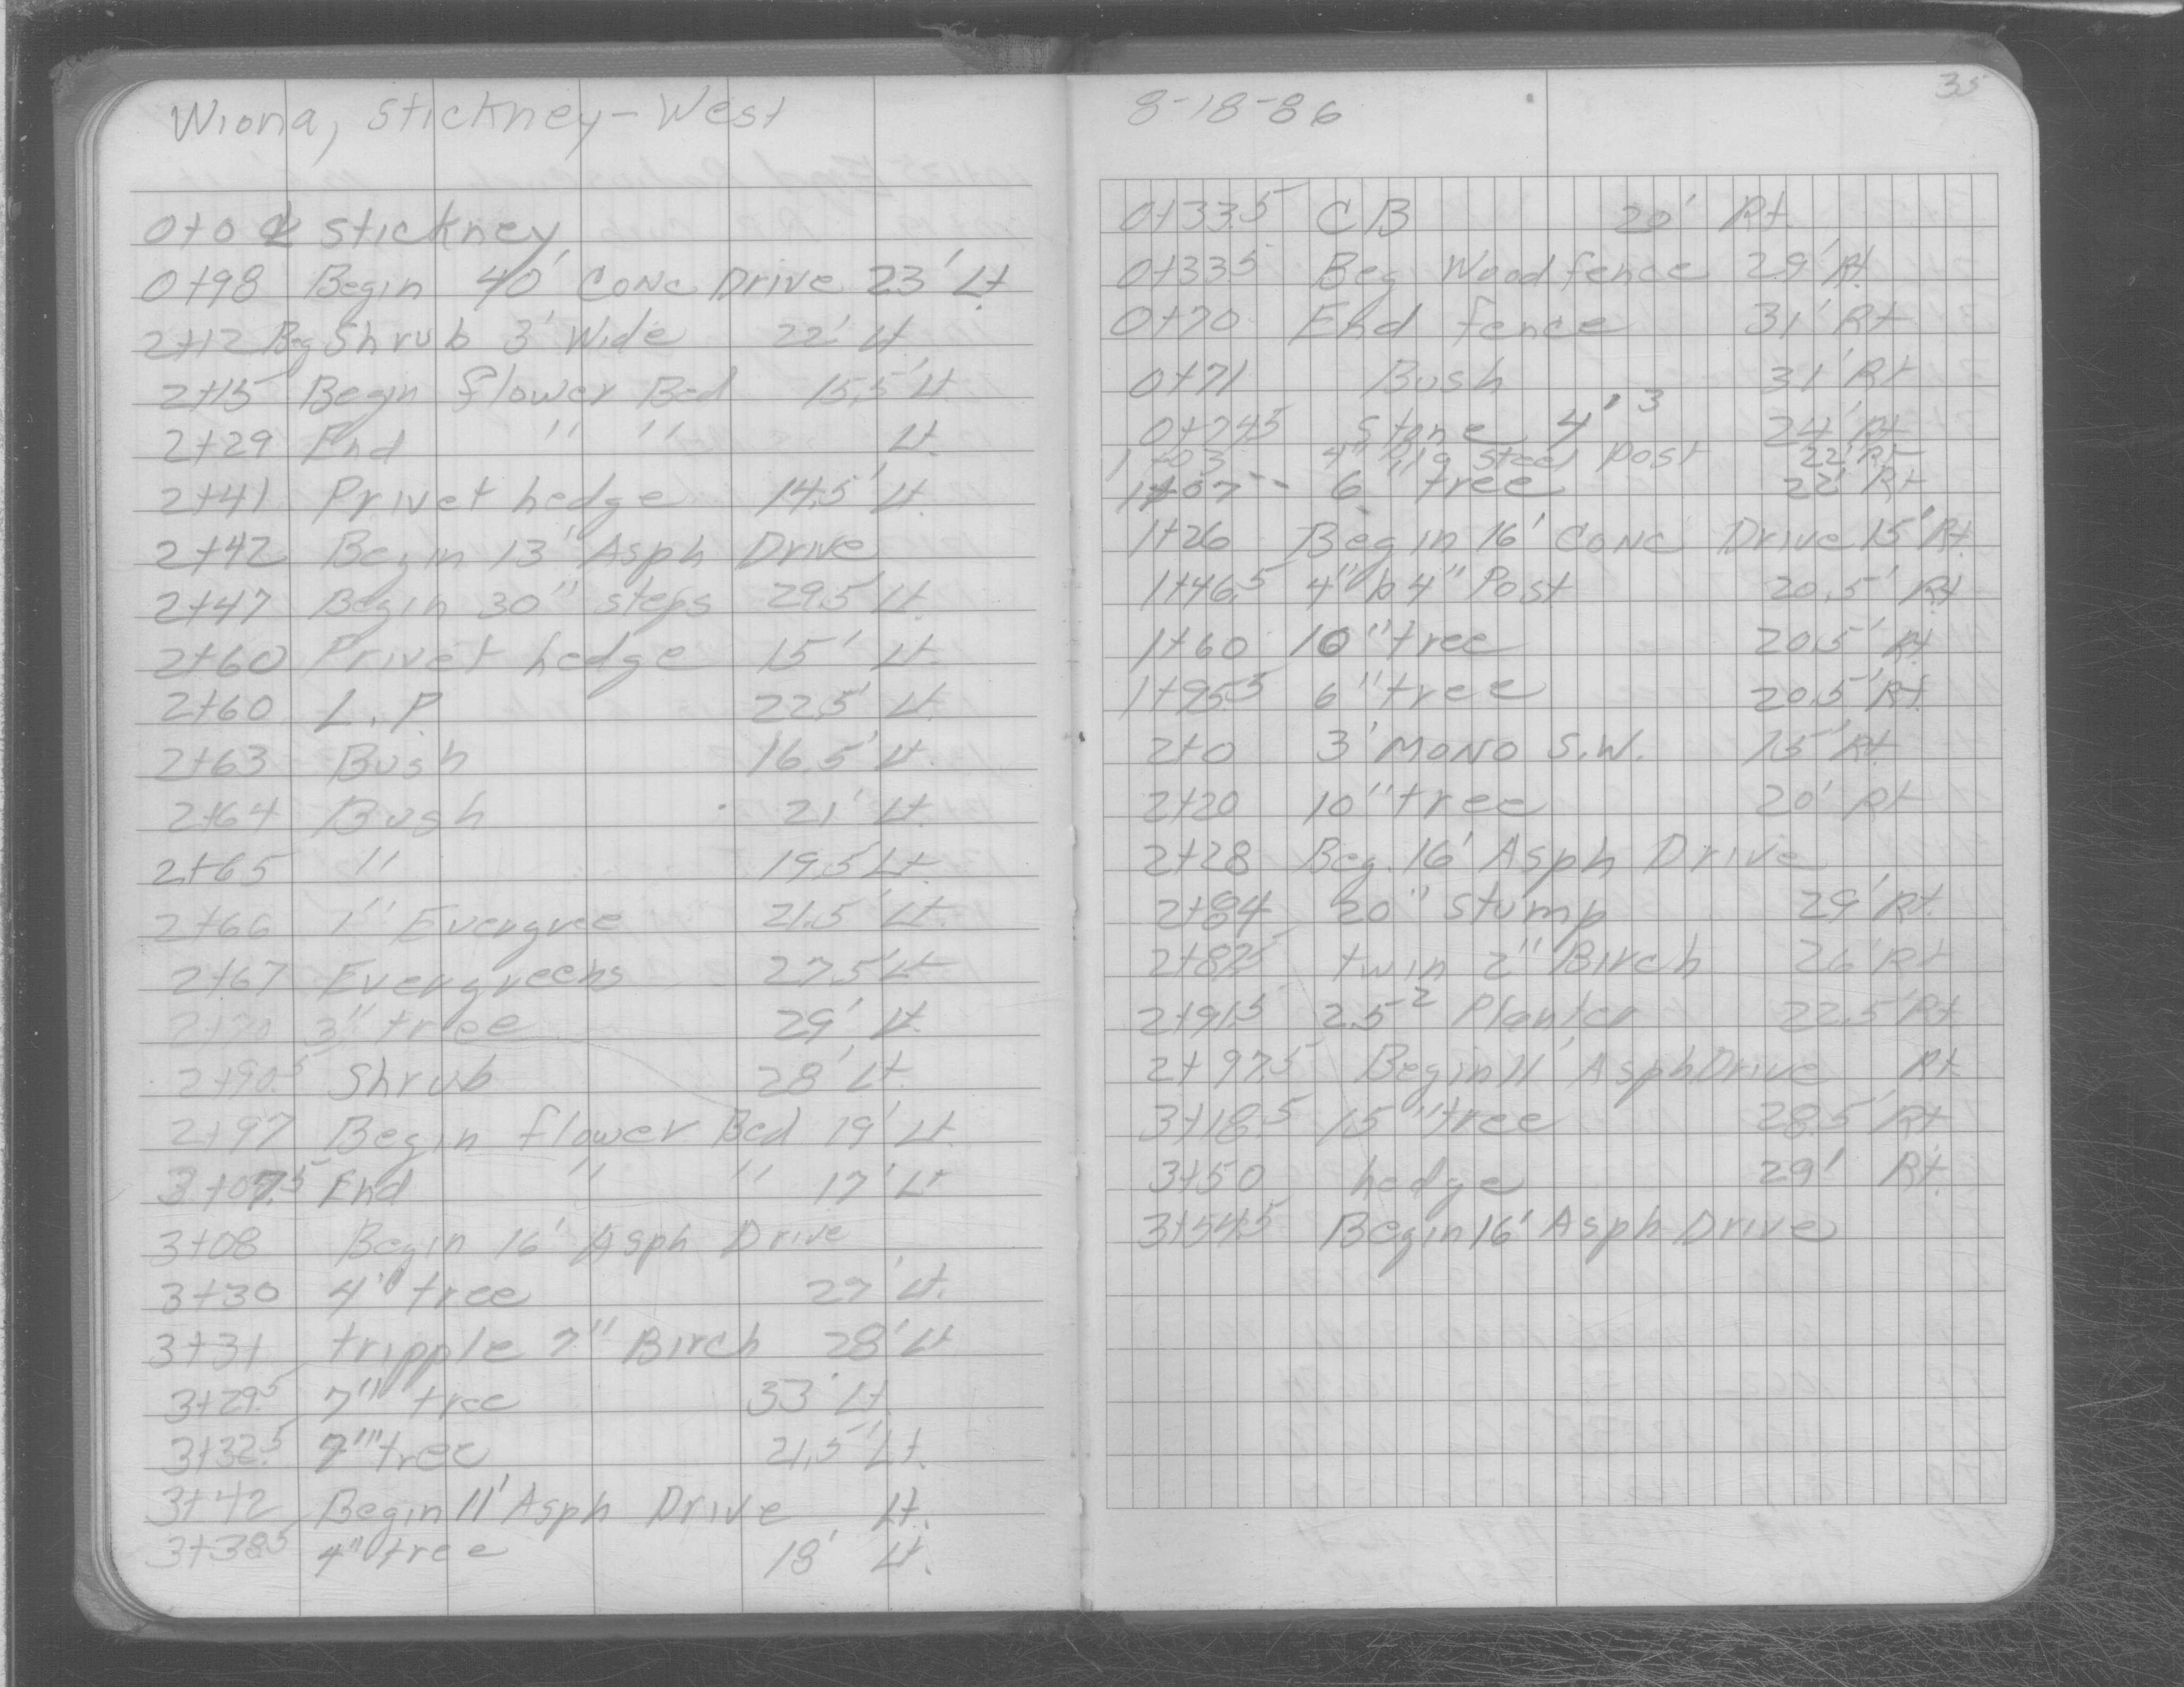 Wiona, Stickney - West
0+0 ℄ Stickney
0+98 Begin 40' Conc Drive 23' Lt
2+12 Beg Shrub 3' Wide 22' Lt
2+15 Begin flower Bed 15.5' Lt
2+29 End " " Lt.
2+41 Privet hedge 14.5' Lt.
2+42 Begin 13' Asph Drive
2+47 Begin 30" steps 29.5' Lt.
2+60 Privet hedge 15' Lt.
2+60 L.P. 22.5' Lt.
2+63 Bush 16.5' Lt.
2+64 Bush 21' Lt.
2+65 " 19.5 Lt.
2+66 1" Evergree 21.5' Lt.
2+67 Evergreens 27.5' Lt
2+70 3" tree 29' Lt.
2+90.5 Shrub 28' Lt.
2+97 Begin flower Bed 19' Lt.
3+07.5 End " " 17' Lt
3+08 Begin 16' Asph Drive
3+30 4" tree 27' Lt.
3+31 tripple 7" Birch 28' Lt
3+29.5 7" tree 33' Lt
3+32.5 7" tree 21.5' Lt.
3+42 Begin 11' Asph Drive Lt.
3+38.5 4" tree 18' Lt.
8-18-86
35
0+33.5 CB 20' Rt.
0+33.5 Beg Wood fence 29' Rt.
0+70 End fence 31' Rt
0+71 Bush 31' Rt
0+74.5 Stone 4' 3 24' Rt
1+03 4" Dia Steel post 22' Rt
1+07 - 6" tree 22' Rt
1+26 Begin 16' Conc Drive 15' Rt.
1+46.5 4" b 4" Post 20.5' Rt
1+60 10" tree 20.5' Rt
1+95.5 6" tree 20.5' Rt.
2+0 3' MONO S.W. 15' Rt.
2+20 10" tree 20' Rt
2+28 Beg. 16' Asph Drive
2+84 20" Stump 29' Rt.
twin 2" Birch 26' Rt
2+91.5 2.5² Planter 22.5' Rt
2+97.5 Begin 11' Asph Drive Rt
3+18.5 15" tree 28.5' Rt
3+50 hedge 29' Rt.
3+54.5 Begin 16' Asph Drive